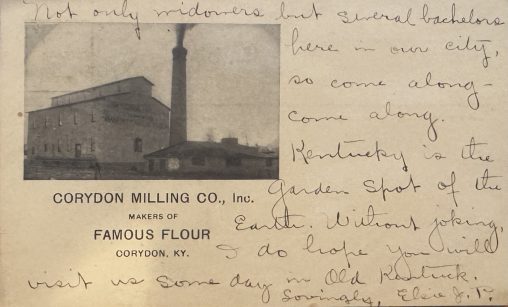 Not only widowers but several bachelors
here in our city,
so come along-
come along.
Kentucky is the
Garden Spot of the
Earth. Without joking,
I do hope you will
visit us some day in Old Kentuck.
Lovingly, Elsie J. T.
CORYDON MILLING CO., Inc.
MAKERS OF
FAMOUS FLOUR
CORYDON, KY.